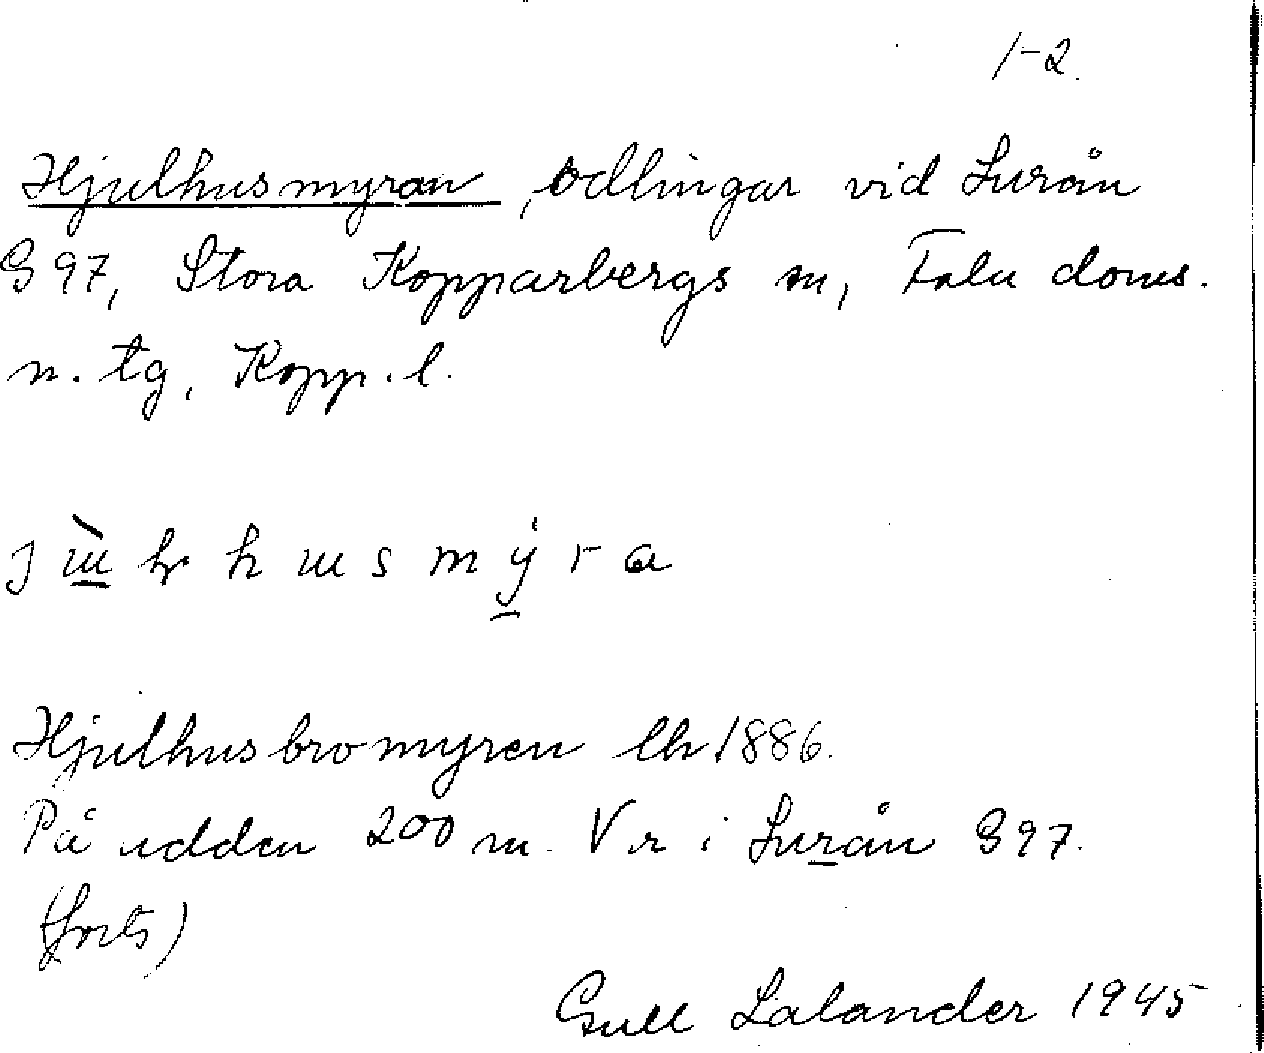 1-2.
Hjulhusmyran, odlingar vid Lurån
G 97, Stora Kopparbergs sn, Falu doms.
n. tg, Kopp. l.
Hjulhusbromyren lh 1886.
På udden 200 m. V. r i Lurån G97.
(forts)
Gull Lalander 1945